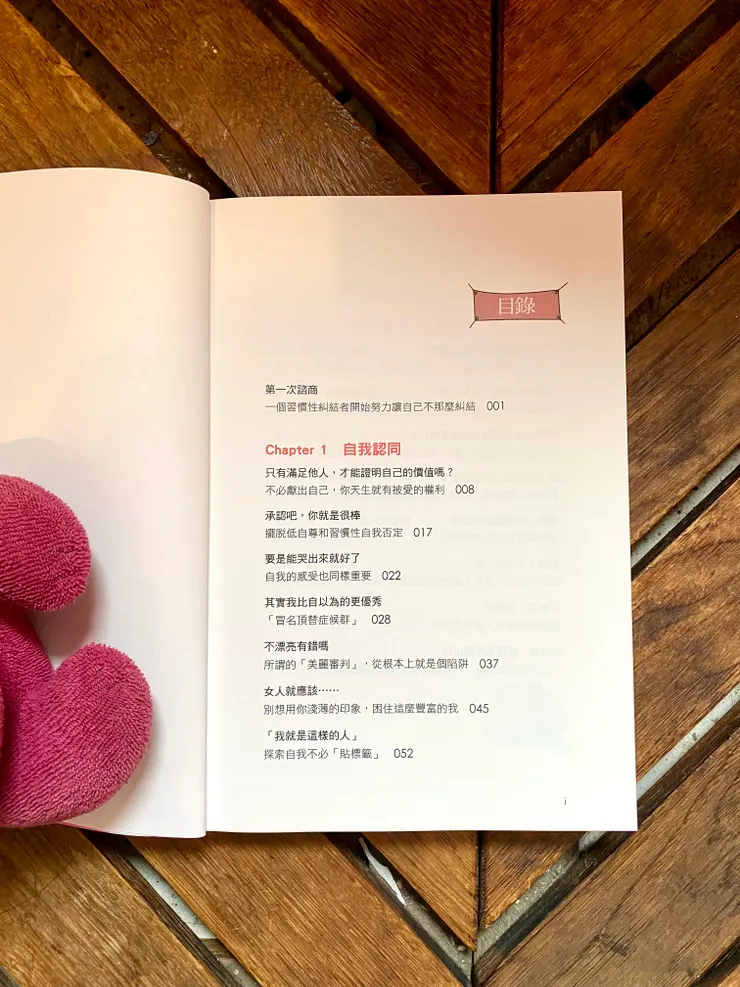 目錄
第一次諮商
一個習慣性糾結者開始努力讓自己不那麼糾結 001
Chapter 1 自我認同
只有滿足他人，才能證明自己的價值嗎？
不必獻出自己，你天生就有被愛的權利 008
承認吧，你就是很棒
擺脫低自尊和習慣性自我否定 017
要是能哭出來就好了
自我的感受也同樣重要 022
其實我比自以為的更優秀
「冒名頂替症候群」 028
不漂亮有錯嗎
所謂的「美麗審判」，從根本上就是個陷阱 037
女人就應該⋯⋯
別想用你淺薄的印象，困住這麼豐富的我 045
「我就是這樣的人」
探索自我不必「貼標籤」 052
i